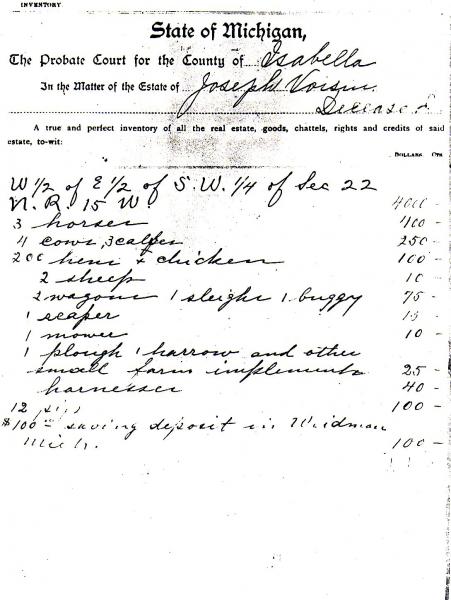 INVENTORY
State of Michigan,
The Probate Court for the County of Isabella
In the Matter of the Estate of Joseph Voisin
Deceased
A true and perfect inventory of all the real estate, goods, chattels, rights and credits of said
estate, to-wit:
DOLLARS CTS
W 1/2 of E 1/2 of S. W. 1/4 of Sec 22
N. R. 15 W 4000 -
3 horses 400 -
4 cows, 3 calfes 250 -
200 hens & chicken 100 -
2 sheep 10 -
2 wagons 1 sleighs 1 buggy 75 -
1 reaper 15 -
1 mower 10 -
1 plough 1 harrow and other
small farm implements 25 -
harnesses 40 -
12 100 -
$100 saving deposit in Weidman
Mich. 100 -